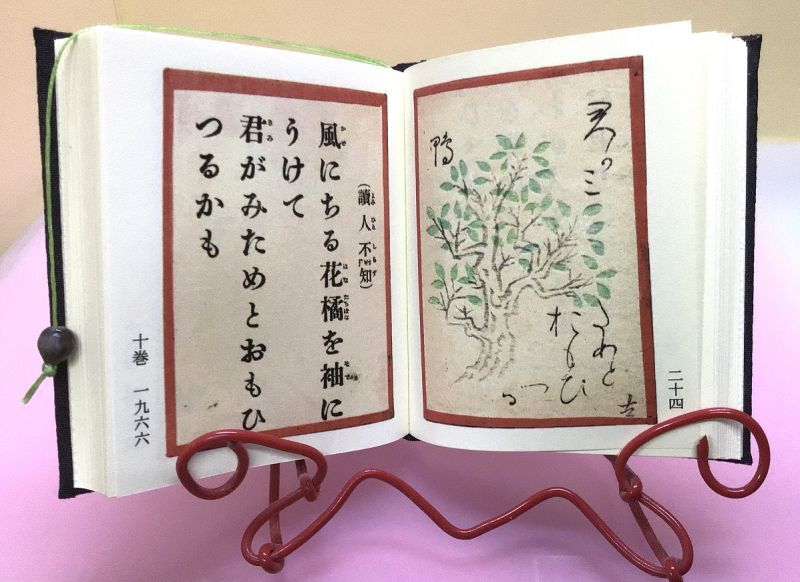 二十四
おもひ
鴨
(讀人不知)
風にちる花橘を袖に
うけて
君がみためとおもひ
つるかも
十巻 一九六六